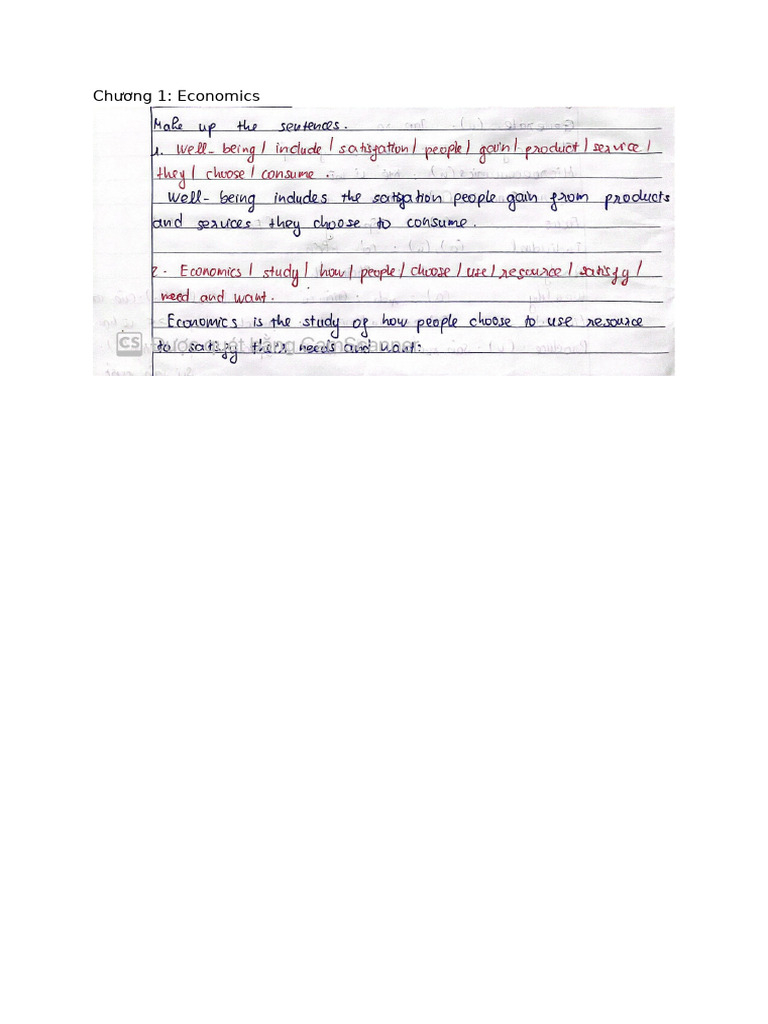 Chương 1: Economics
Make up the sentences.
1. Well-being / include / satisfation / people / gain / product / service /
they / choose / consume.
Well-being includes the satisfation people gain from products
and services they choose to consume.
2. Economics / study / how / people / choose / use / resource / satisfy /
need and want.
Economics is the study of how people choose to use resource
to satisfy their needs and want:
CS Được quét bằng CamScanner